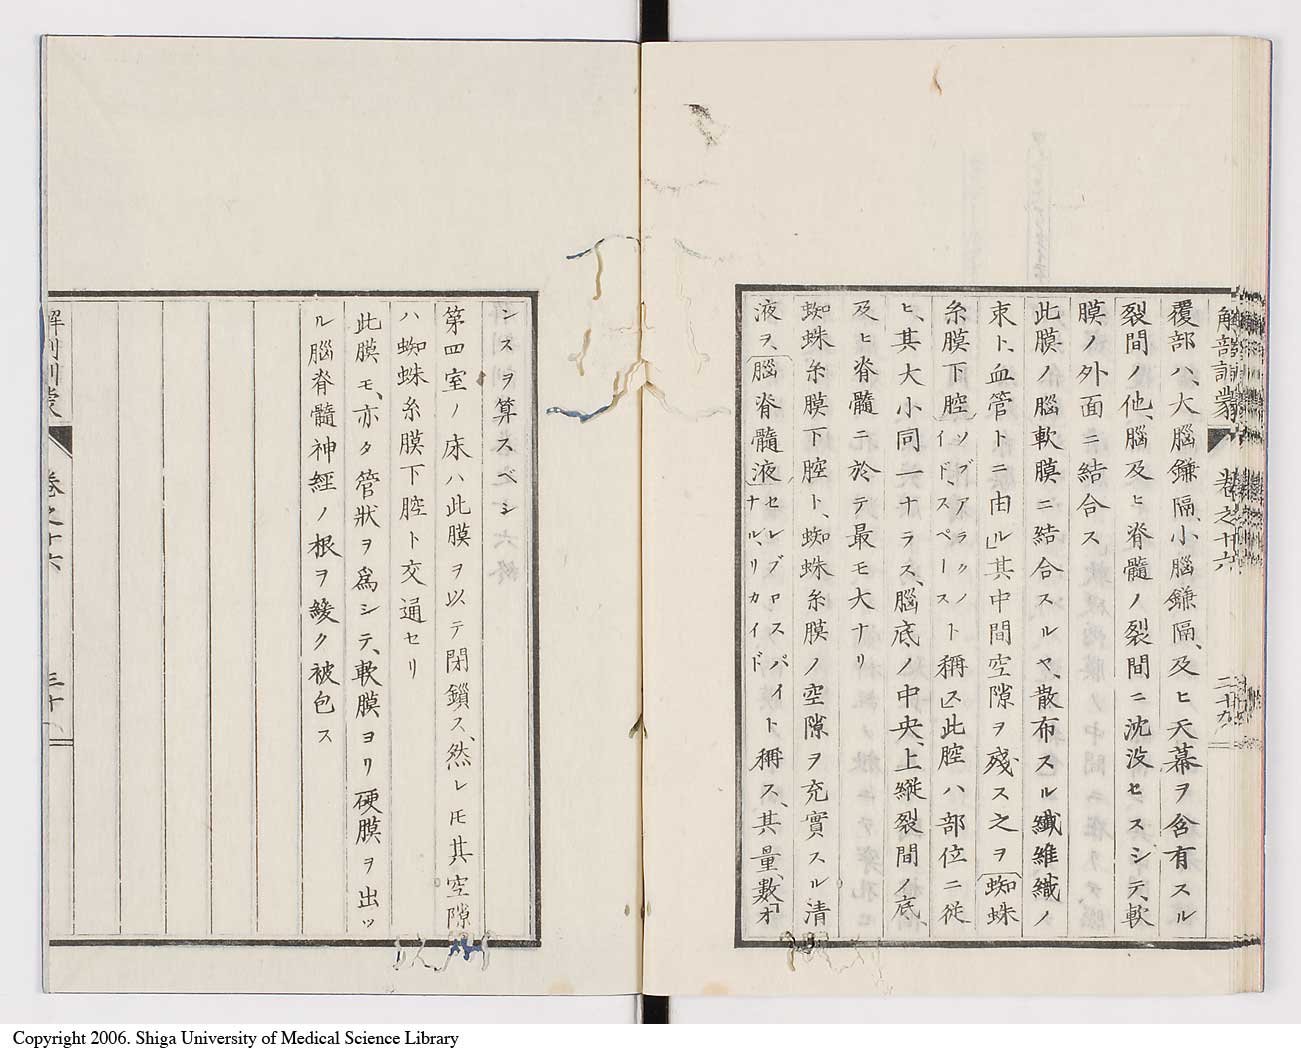 解剖訓蒙 卷之十六 二十九
覆部ハ、大腦鎌隔、小腦鎌隔、及ヒ天幕ヲ含有スル
裂間ノ他、腦及ヒ脊髓ノ裂間ニ沈沒セスシテ、軟
膜ノ外面ニ結合ス
此膜ノ腦軟膜ニ結合スルヤ、散布スル纖維織ノ
束ト、血管トニ由ル」其中間空隙ヲ殘ス之ヲ蜘蛛
糸膜下腔ツブアラクノイド、スペースト稱ス」此腔ハ部位ニ從
ヒ、其大小同一ナラス、腦底ノ中央、上縱裂間ノ底、
及ヒ脊髓ニ於テ最モ大ナリ
蜘蛛糸膜下腔ト、蜘蛛糸膜ノ空隙ヲ充實スル清
液ヲ、腦脊髓液セレブロスパイナル、リカイドト稱ス、其量、數「オ
ンスヲ算スベシ
第四室ノ床ハ此膜ヲ以テ閉鎖ス、然レモ其空隙
ハ蜘蛛糸膜下腔ト交通セリ
此膜モ、亦タ管狀ヲ爲シテ、軟膜ヨリ硬膜ヲ出ッ
ル腦脊髓神經ノ根ヲ緩ク被包ス
卷之十六
Copyright 2006. Shiga University of Medical Science Library